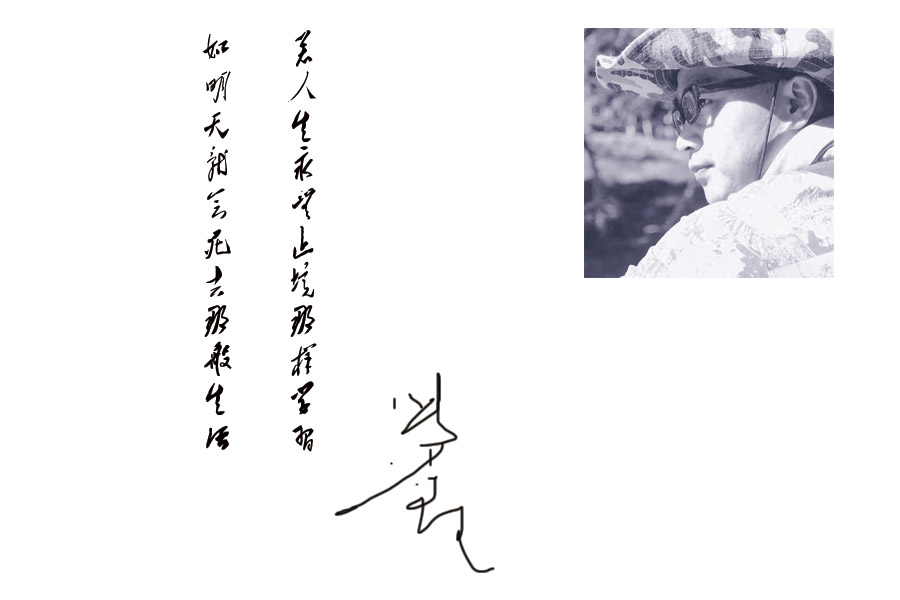 若人生永無止境那样学習
如明天就会死去那般生活